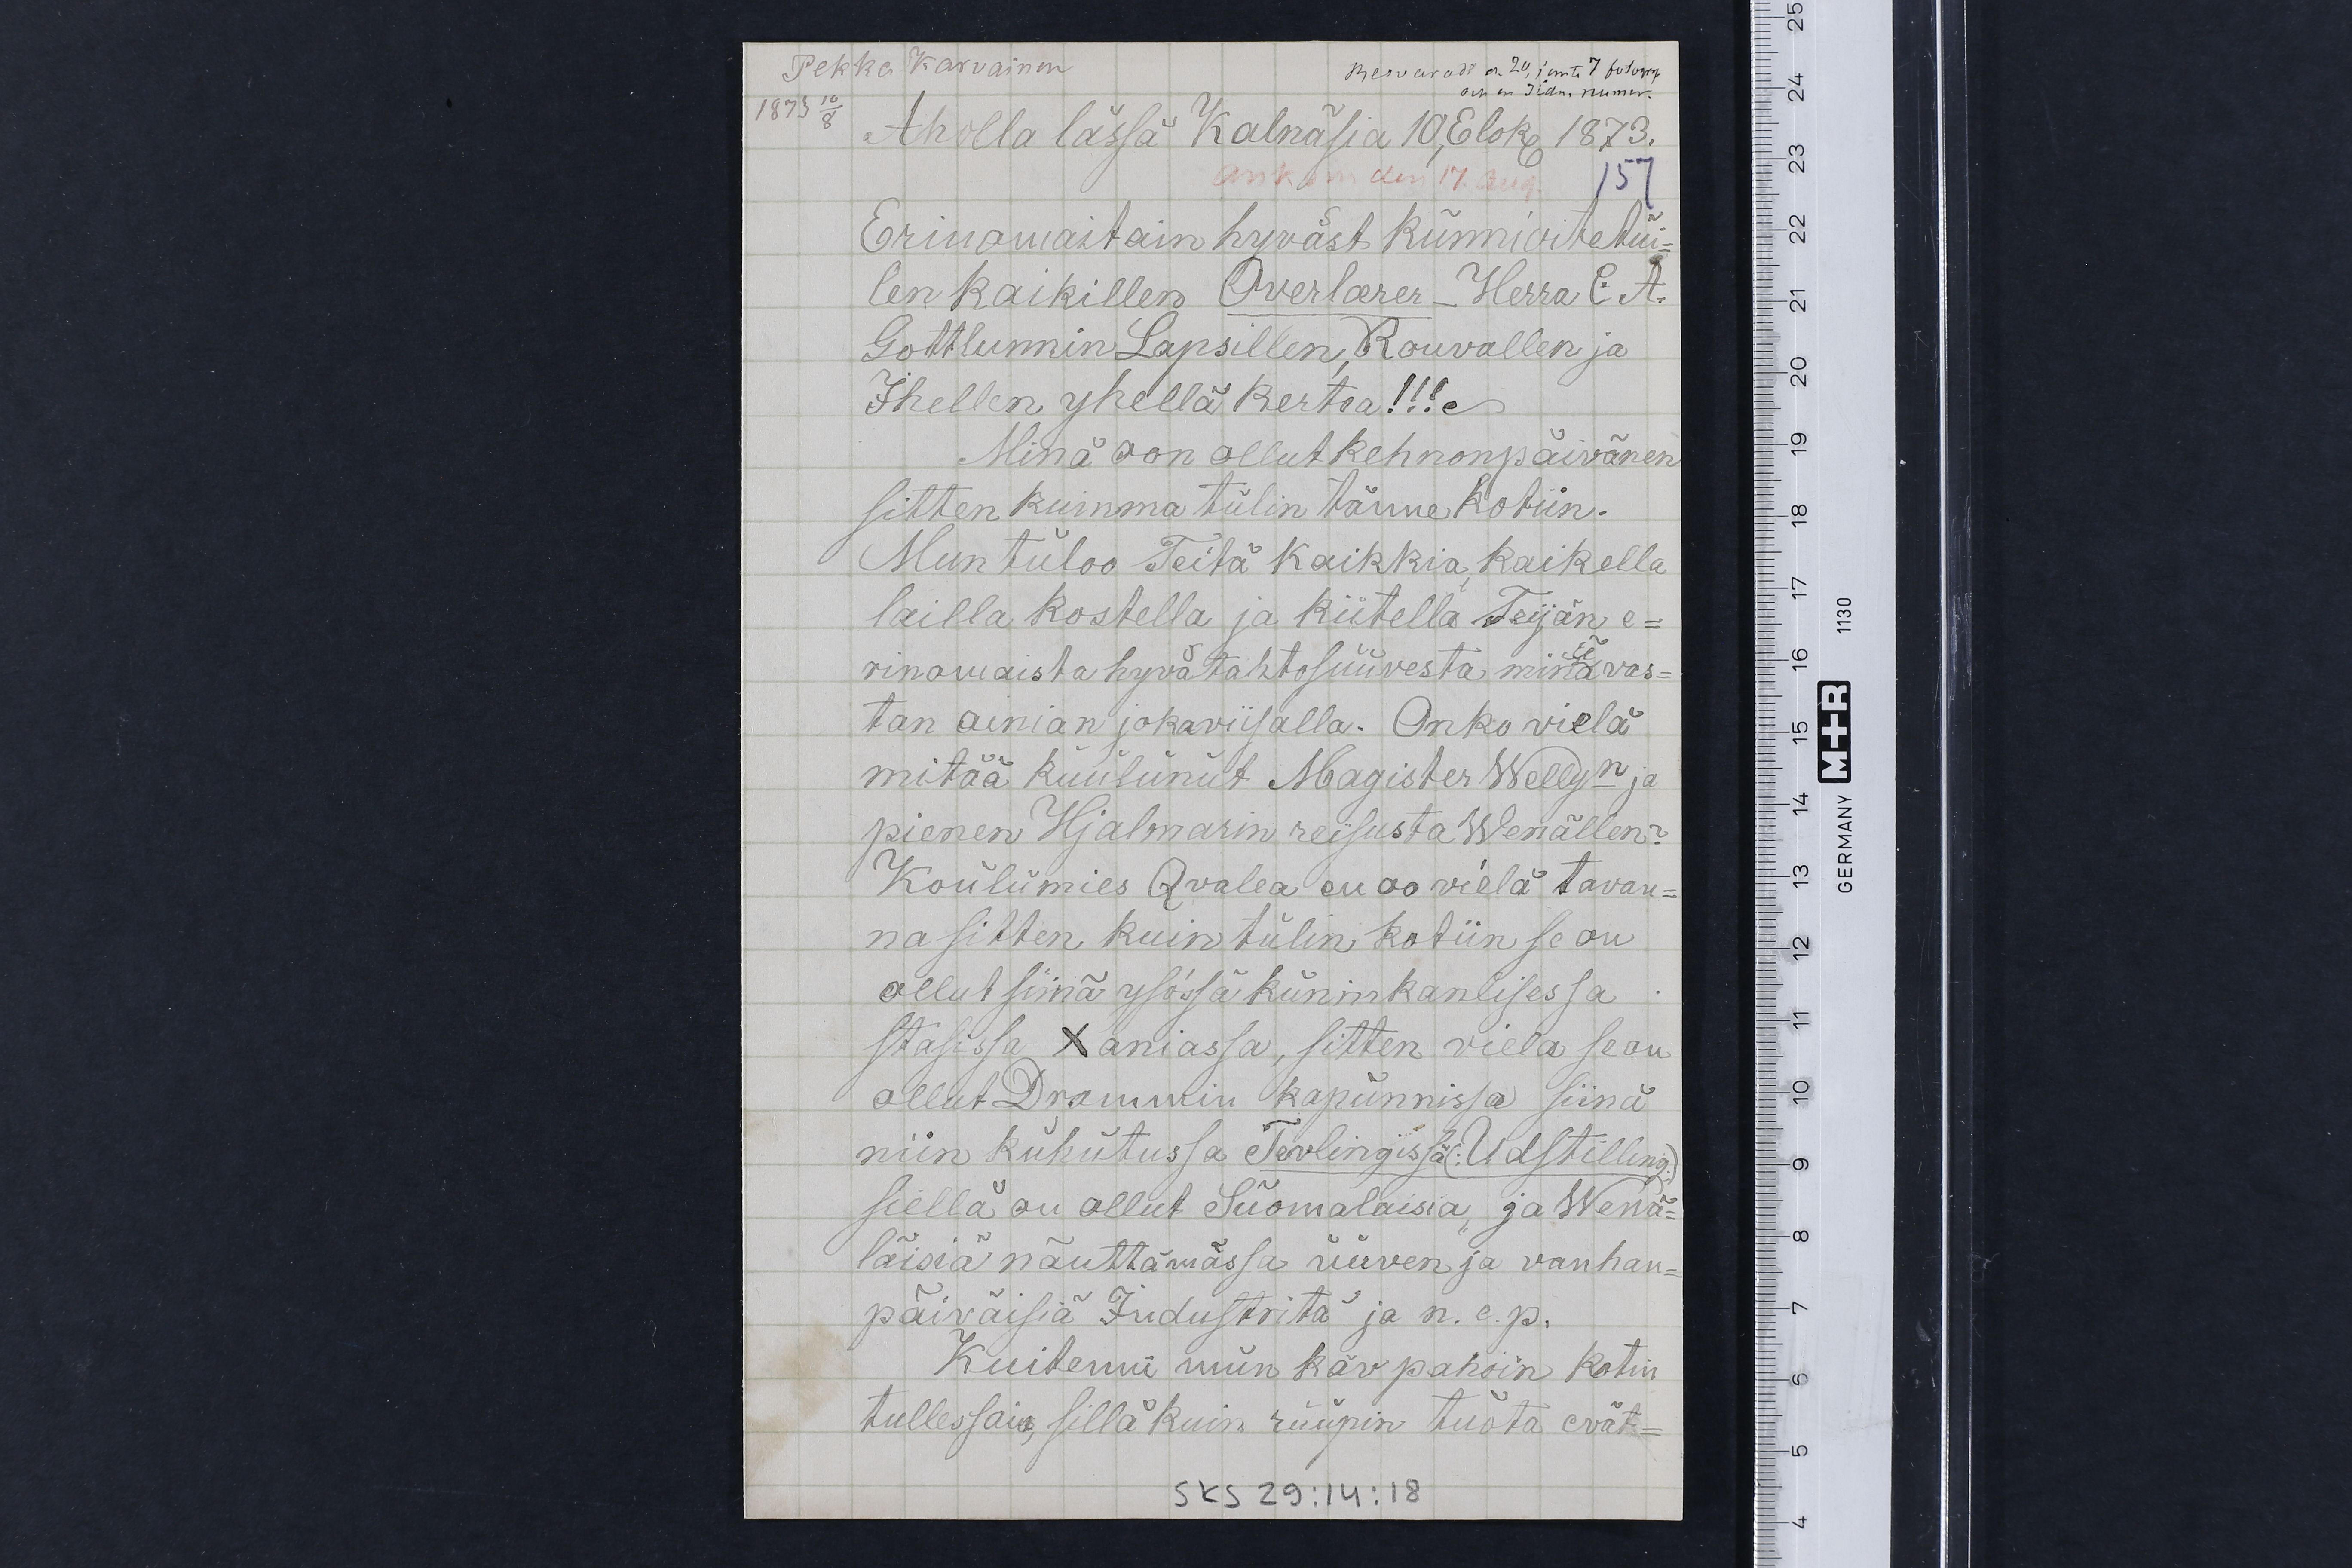 Pekka Karvainen
Besvaradt d. 20, jemte 7 fotogr.
och en Tidn. numer.
1873 10/8
Aholla lässä Kalnäsia 10, Elok. 1873.
Ankom den 17 Aug.
157
Erinomaistain hyväst kŭnnioitetŭi=
len kaikillen Overlærer - Herra C. A.
Gottlunnin Lapsillen, Rouvallen ja
Ihellen yhellä kertoa!!!
Minä oon ollut kehnonpäivänen
sitten kuinma tŭlin tänne kotiin.
Mun tŭloo Teitä kaikkia, kaikella
lailla kostella ja kiitellä Teijän e=
rinomaista hyvätahtosŭŭvesta minŭä vas=
tan ainian jokaviisalla. Onko vielä
mitää kŭŭlŭnŭt Magister Wellyn ja
pienen Hjalmarin reisusta Wenällen?
Koŭlŭmies Qvalea eu oo vielä tavan=
na sitten kuin tŭlin kotiin se on
ollut siinä ysössä kŭninkanlisessa
stasissa Xaniassa, sitten vielä se on
ollut Drammin kapŭnnissa siinä
niin kŭhŭtussa Tevlingissä (: Udstilling:)
siellä on ollut Sŭomalaisia, ja Wenä=
läisiä näuttämässä ŭŭven ja vanhan=
päiväisiä Industritä ja n. e. p.
Kuitenni mŭn käv pahoin kotiin
tullessain, sillä kuin rŭŭpin tuota evät=
SKS 29:14:18
GERMANY M+R 1130
25
24
23
22
21
20
19
18
17
16
15
14
13
12
11
10
9
8
7
6
5
4